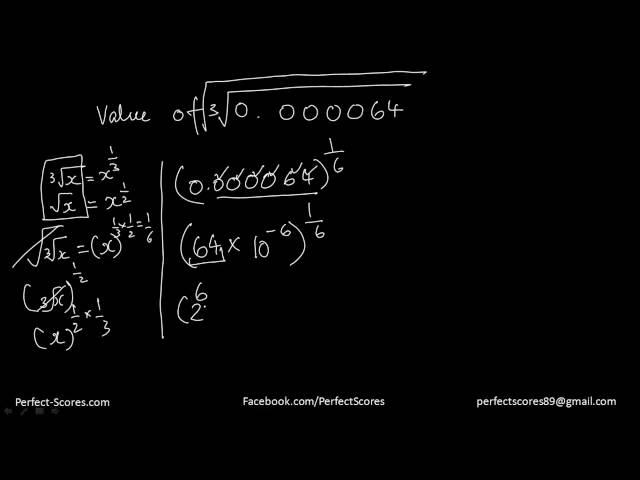 Value of √∛0.000064
∛x = x^1/3
√x = x^1/2
√∛x = (x)^1/3 × 1/2 = 1/6
(∛x)^1/2
(x)^1/2 × 1/3
(0.000064)^1/6
(64 × 10^-6)^1/6
(2^6
Perfect-Scores.com
Facebook.com/PerfectScores
perfectscores89@gmail.com